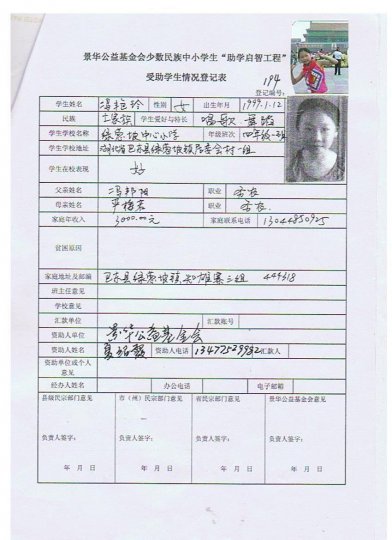 景华公益基金会少数民族中小学生“助学启智工程”
受助学生情况登记表
194
登记编号:
学生姓名 冯拉玲 性别 女 出生年月 1999.1.12
民族 土家族 学生爱好与特长 唱歌 舞蹈
学生学校名称 绿葱坡中心小学 年级班次 四年级一班
学生学校地址 湖北省巴东县绿葱坡镇居委会村一组
学生在校表现 好
父亲姓名 冯邦 职业 务农
母亲姓名 职业 务农.
家庭年收入 3000.00元 家庭联系电话 13044850925
贫困原因
家庭地址及邮编 巴东县绿葱坡镇 寨三组 444318
班主任意见
学校意见
汇款单位 汇款账号
资助人单位 景华公益基金会
资助人姓名 资助人电话 13477529982 汇款人
资助单位或个人
意见
经办人姓名 办公电话 电子邮箱
县级民宗部门意见 市(州)民宗部门意见 省民宗部门意见 景华公益基金会意见
负责人签字: 负责人签字: 负责人签字: 负责人签字:
年 月 日 年 月 日 年 月 日 年 月 日